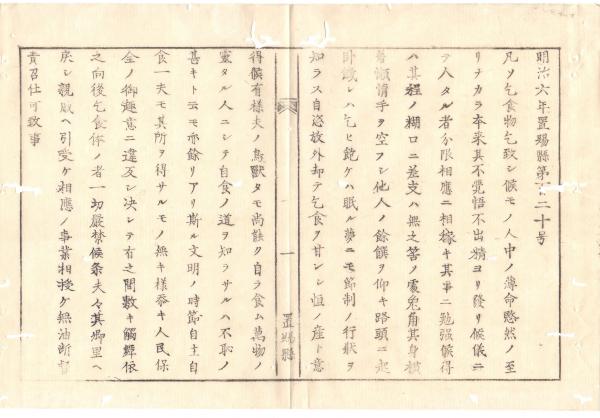 明治六年置賜縣第百二十号
凡ソ乞食物乞致シ候モノ人中ノ薄命愍然ノ至
リナカラ本来其不覺悟不出精ヨリ發リ候儀ニ
テ人タル者分限相應ニ相稼キ其事ニ勉强候得
ハ其程ノ糊口ニ差支ハ無之筈ノ處兎角其身
懶惰手ヲ空フシ他人ノ餘饌ヲ仰キ路頭ニ起
臥シハ乞ヒ飽ケハ眠ル夢ニモ節制ノ行狀ヲ
知ラス自恣放外却テ乞食ヲ甘ンシ恒ノ産ト意
一
置賜縣
得候有様夫ノ鳥獸タモ尚能ク自ラ食ム萬物ノ
靈タル人ニシテ自食ノ道ヲ知ラサルハ不恥ノ
甚キト云モ亦餘リアリ斯ル文明ノ時節自主自
食一夫モ其所ヲ得サルモノ無キ様黍キ人民保
全ノ御趣意ニ違反シ决シテ有之間敷キ觸鰥依
之向後乞食体ノ者一切嚴禁候条夫々其郷里ヘ
戻シ親戚ヘ引受ケ相應ノ事業相授ケ無油断督
責召仕可致事